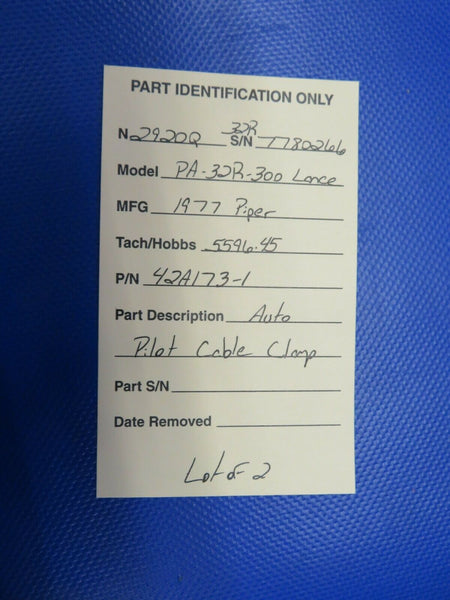 PART IDENTIFICATION ONLY
N 2920Q S/N 32R 7780266
Model PA-32R-300 Lance
MFG 1977 Piper
Tach/Hobbs 5596.45
P/N 42A173-1
Part Description Auto
Pilot Cable Clamp
Part S/N
Date Removed
Lot of 2